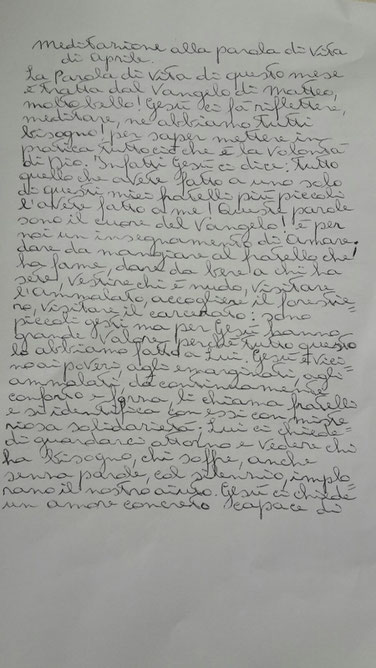 Meditazione alla parola di Vita
di Aprile.
La Parola di Vita di questo mese
è tratta dal Vangelo di Matteo,
molto bello! Gesù ci fà riflettere,
meditare, ne abbiamo tutti
bisogno! per saper mettere in
pratica tutto ciò che è la Volontà
di Dio. Infatti Gesù ci dice: tutto
quello che avete fatto a uno solo
di questi miei fratelli più piccoli
l'avete fatto a me! Queste parole
sono il cuore del Vangelo! è per
noi un insegnamento di Amare.
dare da mangiare al fratello che
ha fame, dare da bere a chi ha
sete, vestire chi è nudo, visitare
l'ammalato, accogliere il forestie=
ro, visitare il carcerato: sono
piccoli gesti ma per Gesù hanno
grande valore perchè tutto questo
lo abbiamo fatto a Lui. Gesù è vici=
no ai poveri, agli emarginati, agli
ammalati, dà continuamente
conforto e forza, li chiama fratelli
e si identifica con essi con miste
riosa solidarietà; Lui ci chiede
di guardarci attorno e vedere chi
ha bisogno, chi soffre, anche
senza parole, col silenzio, implo=
rano il nostro aiuto. Gesù ci chiede
un amore concreto capace di